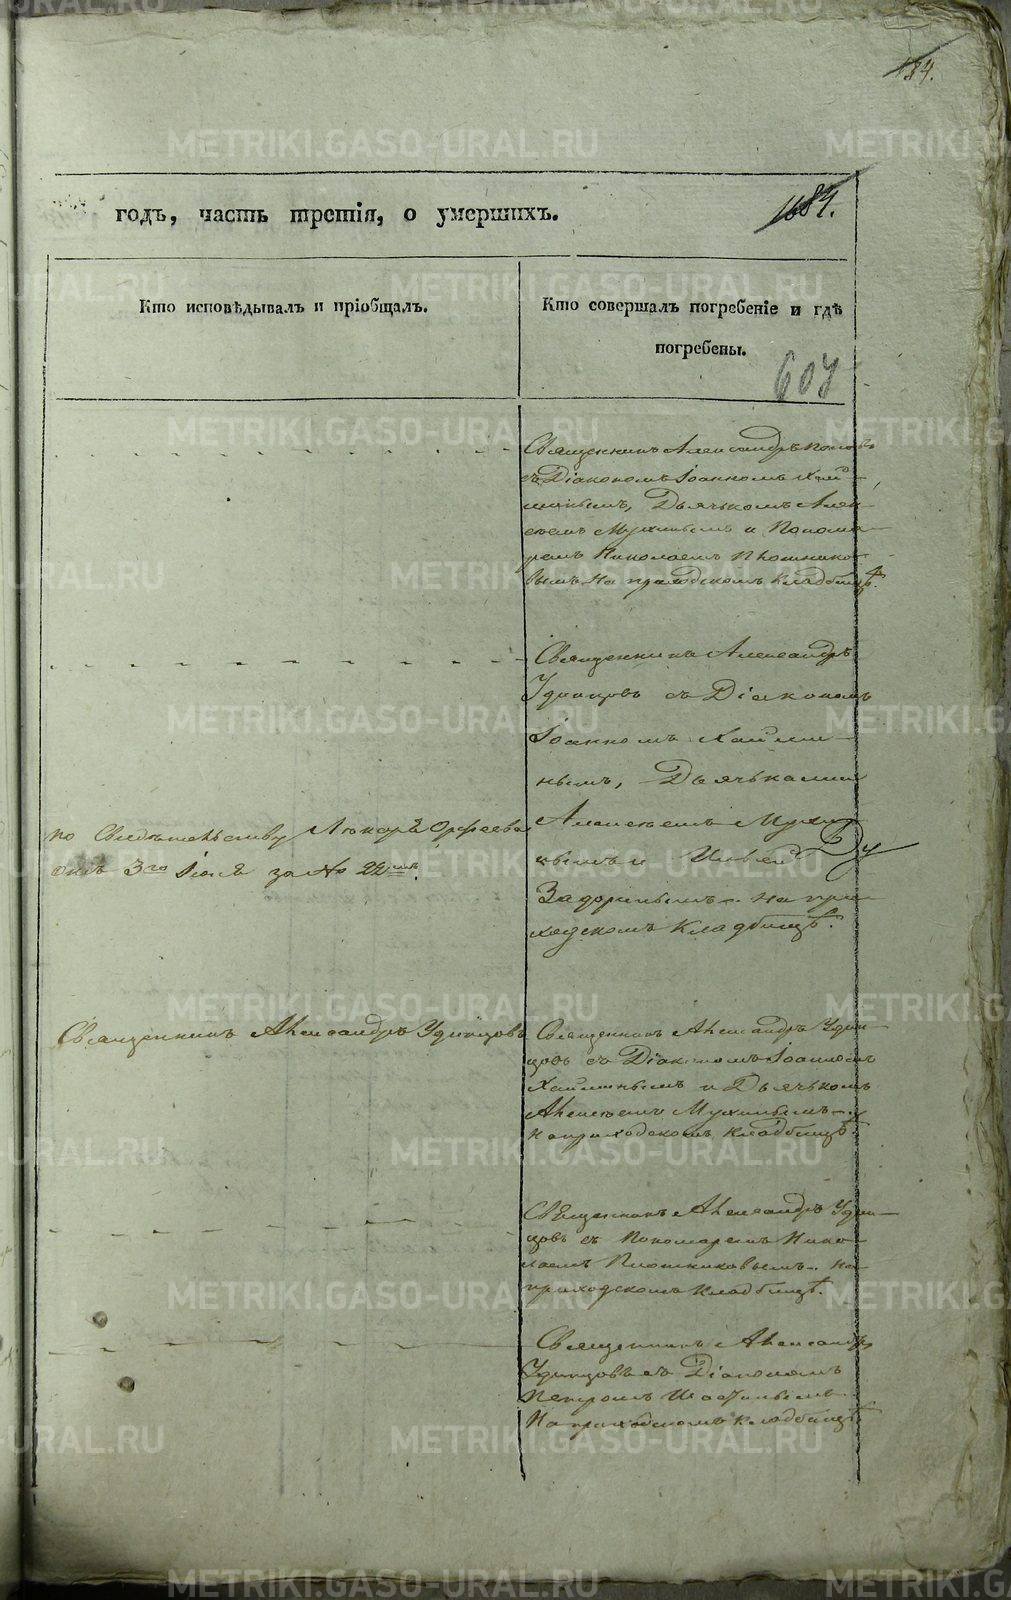 184.
годъ, часть третія, о умершихъ.
1684.
Кто исповѣдывалъ и пріобщалъ.
Кто совершалъ погребеніе и гдѣ
погребены.
607
Священникъ Александръ Поповъ
съ Діакономъ Іоанномъ Хай-
минымъ, Дьячькомъ Алек-
сѣемъ Мухинымъ и Понома-
ремъ Николаемъ Плотнико-
вымъ на приходскомъ кладбищѣ.
Священникъ Александръ
Удинцовъ съ Діакономъ
Іоанномъ Хайми-
нымъ, Дьячьками
Алексѣемъ Мухи-
нымъ и
Задоринымъ. на при-
ходскомъ Кладбищѣ.
по Свидѣтельству Лекаря
отъ 3го Іюля за № 22мъ.
Священникъ Александръ Удинцовъ
Священникъ Александръ Удин-
цовъ съ Діакономъ Іоанномъ
Хайминымъ и Дьячькомъ
Алексѣемъ Мухинымъ-
на приходскомъ кладбищѣ.
Священникъ Александръ Удин-
цовъ съ Пономаремъ Нико-
лаемъ Плотниковымъ. на
приходскомъ кладбищѣ.
Священникъ Александръ
Удинцовъ съ Діакономъ
Петромъ
на приходскомъ кладбищѣ
METRIKI.GASO-URAL.RU